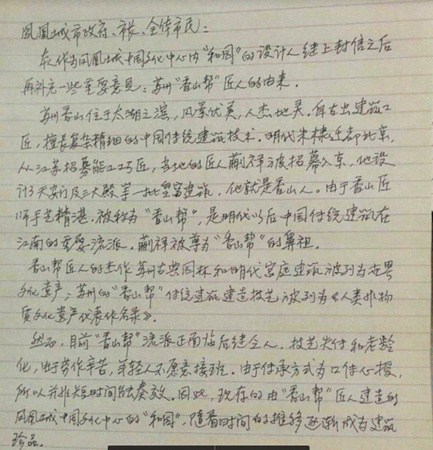 凤凰城市政府、市长、全体市民：
我作为凤凰城中国文化中心内“和园”的设计人继上封信之后
再补充一些重要意见：苏州“香山帮”匠人的由来。
苏州香山位于太湖之滨，风景优美，人杰地灵，自古出建筑工
匠，擅长复杂精细的中国传统建筑技术。明代朱棣迁都北京，
从江苏招募能工巧匠，当地的匠人蒯祥被招募入京，他设
计了天安门及三大殿等一批皇宫建筑，他就是香山人。由于香山匠
师手艺精湛，被称为“香山帮”，是明代以后中国传统建筑在
江南的重要流派。蒯祥被尊为“香山帮”的鼻祖。
香山帮匠人的杰作苏州古典园林和明代宫庭建筑被列为世界
文化遗产；苏州的“香山帮”传统建筑建造技艺被列为《人类非物
质文化遗产代表作名录》。
然而，目前“香山帮”流派正面临后继乏人，技艺失传和老龄
化，由于劳作辛苦，年轻人不愿意接班。由于传承方式为口传心授，
所以并非短时间能奏效。因此，现存的由“香山帮”匠人建造的
凤凰城中国文化中心的“和园”，随着时间的推移逐渐成为建筑
珍品。